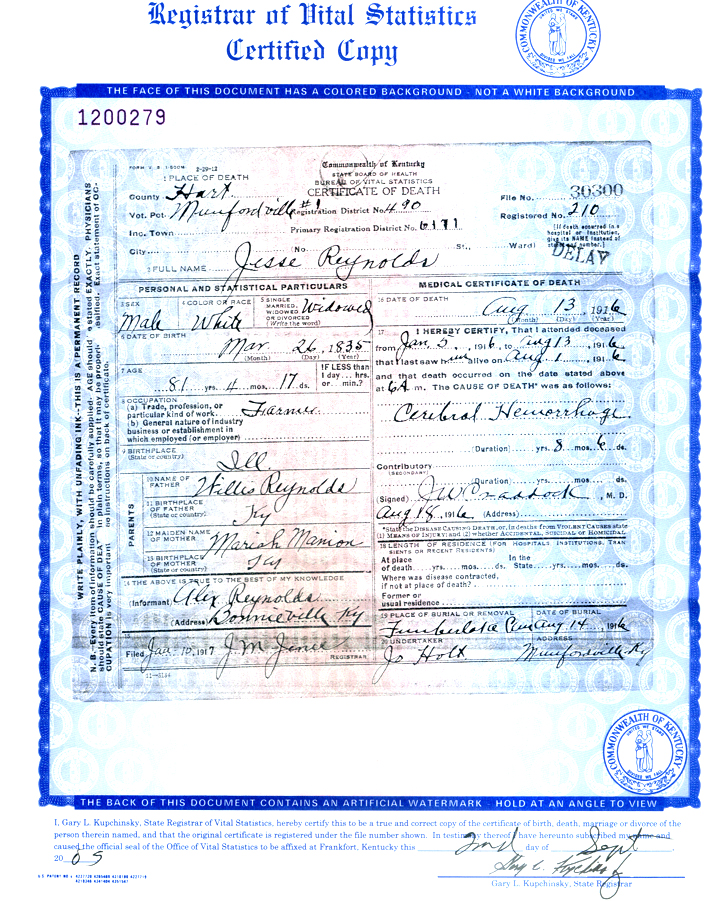 Registrar of Vital Statistics
Certified Copy
COMMONWEALTH OF KENTUCKY
THE FACE OF THIS DOCUMENT HAS A COLORED BACKGROUND - NOT A WHITE BACKGROUND
1200279
WRITE PLAINLY, WITH UNFADING INK--THIS IS A PERMANENT RECORD
N. B.--Every item of information should be carefully supplied. AGE should be stated EXACTLY. PHYSICIANS
should state CAUSE OF DEATH in plain terms, so that it may be properly classified. Exact statement of OC-
CUPATION is very important. See instructions on back of certificate.
2-29-12
Commonwealth of Kentucky
STATE BOARD OF HEALTH
BUREAU OF VITAL STATISTICS
CERTIFICATE OF DEATH
1 PLACE OF DEATH
County Hart
Vot. Pct. Munfordville #1 Registration District No. 490
File No. 30300
Inc. Town Primary Registration District No. 6171
Registered No. 210
City No. St., Ward)
[If death occurred in a
hospital or institution,
give its NAME instead of
street and number.]
DELAY
2 FULL NAME Jesse Reynolds
PERSONAL AND STATISTICAL PARTICULARS
3 SEX Male
4 COLOR OR RACE White
5 SINGLE
MARRIED,
WIDOWED
OR DIVORCED
(Write the word) Widowed
6 DATE OF BIRTH
Mar 26, 1835
(Month) (Day) (Year)
7 AGE
81 yrs. 4 mos. 17 ds.
If LESS than
1 day... hrs.
or... min.?
8 OCCUPATION
(a) Trade, profession, or
particular kind of work. Farmer
(b) General nature of industry
business or establishment in
which employed (or employer)
9 BIRTHPLACE
(State or country) Ill
PARENTS
10 NAME OF
FATHER Willis Reynolds
11 BIRTHPLACE
OF FATHER
(State or country) Ky
12 MAIDEN NAME
OF MOTHER Mariah
13 BIRTHPLACE
OF MOTHER
(State or country) Ky
14 THE ABOVE IS TRUE TO THE BEST OF MY KNOWLEDGE
(Informant) Alex Reynolds
(Address) Bonnieville Ky
15 Filed Jan 10, 1917 J. M. REGISTRAR
11-5194
MEDICAL CERTIFICATE OF DEATH
16 DATE OF DEATH
Aug 13, 1916
(Month) (Day) (Year)
17 I HEREBY CERTIFY, That I attended deceased
from Jan 5, 1916, to Aug 13, 1916,
that I last saw him alive on Aug 1, 1916
and that death occurred on the date stated above
at 6 A m. The CAUSE OF DEATH* was as follows:
Cerebral Hemorrhage
(Duration) yrs. 8 mos. 6 ds.
Contributory
(SECONDARY)
(Duration) yrs. mos. ds.
(Signed) J W Craddock, M. D.
Aug 18, 1916 (Address)
*State the DISEASE CAUSING DEATH, or, in deaths from VIOLENT CAUSES state
(1) MEANS OF INJURY; and (2) whether ACCIDENTAL, SUICIDAL OF HOMICIDAL
18 LENGTH OF RESIDENCE (FOR HOSPITALS, INSTITUTIONS, TRAN
SIENTS OR RECENT RESIDENTS)
At place In the
of death yrs. mos. ds. State yrs. mos. ds.
Where was disease contracted,
if not at place of death?
Former or
usual residence
19 PLACE OF BURIAL OR REMOVAL DATE OF BURIAL
Aug 14, 1916
20 UNDERTAKER ADDRESS
Jo Holt Munfordville Ky
COMMONWEALTH OF KENTUCKY
THE BACK OF THIS DOCUMENT CONTAINS AN ARTIFICIAL WATERMARK - HOLD AT AN ANGLE TO VIEW
I, Gary L. Kupchinsky, State Registrar of Vital Statistics, hereby certify this to be a true and correct copy of the certificate of birth, death, marriage or divorce of the
person therein named, and that the original certificate is registered under the file number shown. In testimony thereof I have hereunto subscribed my name and
caused the official seal of the Office of Vital Statistics to be affixed at Frankfort, Kentucky this 2nd day of Sept
2005
Gary L. Kupchinsky, State Registrar